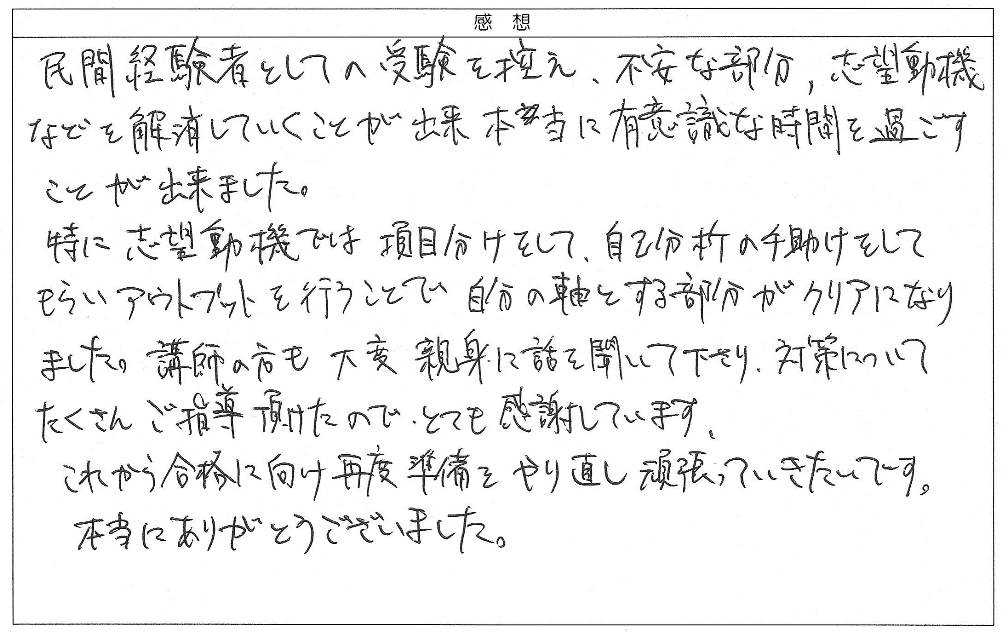 感想
民間経験者としての受験を控え、不安な部分，志望動機
などを解消していくことが出来 本当に有意識な時間を過ごす
ことが出来ました。
特に志望動機では項目分けをして、自己分析の手助けをして
もらいアウトプットを行うことで自分の軸とする部分がクリアになり
ました。講師の方も大変親身に話を聞いて下さり、対策について
たくさんご指導頂けたので、とても感謝しています。
これから合格に向け再度準備をやり直し頑張っていきたいです。
本当にありがとうございました。